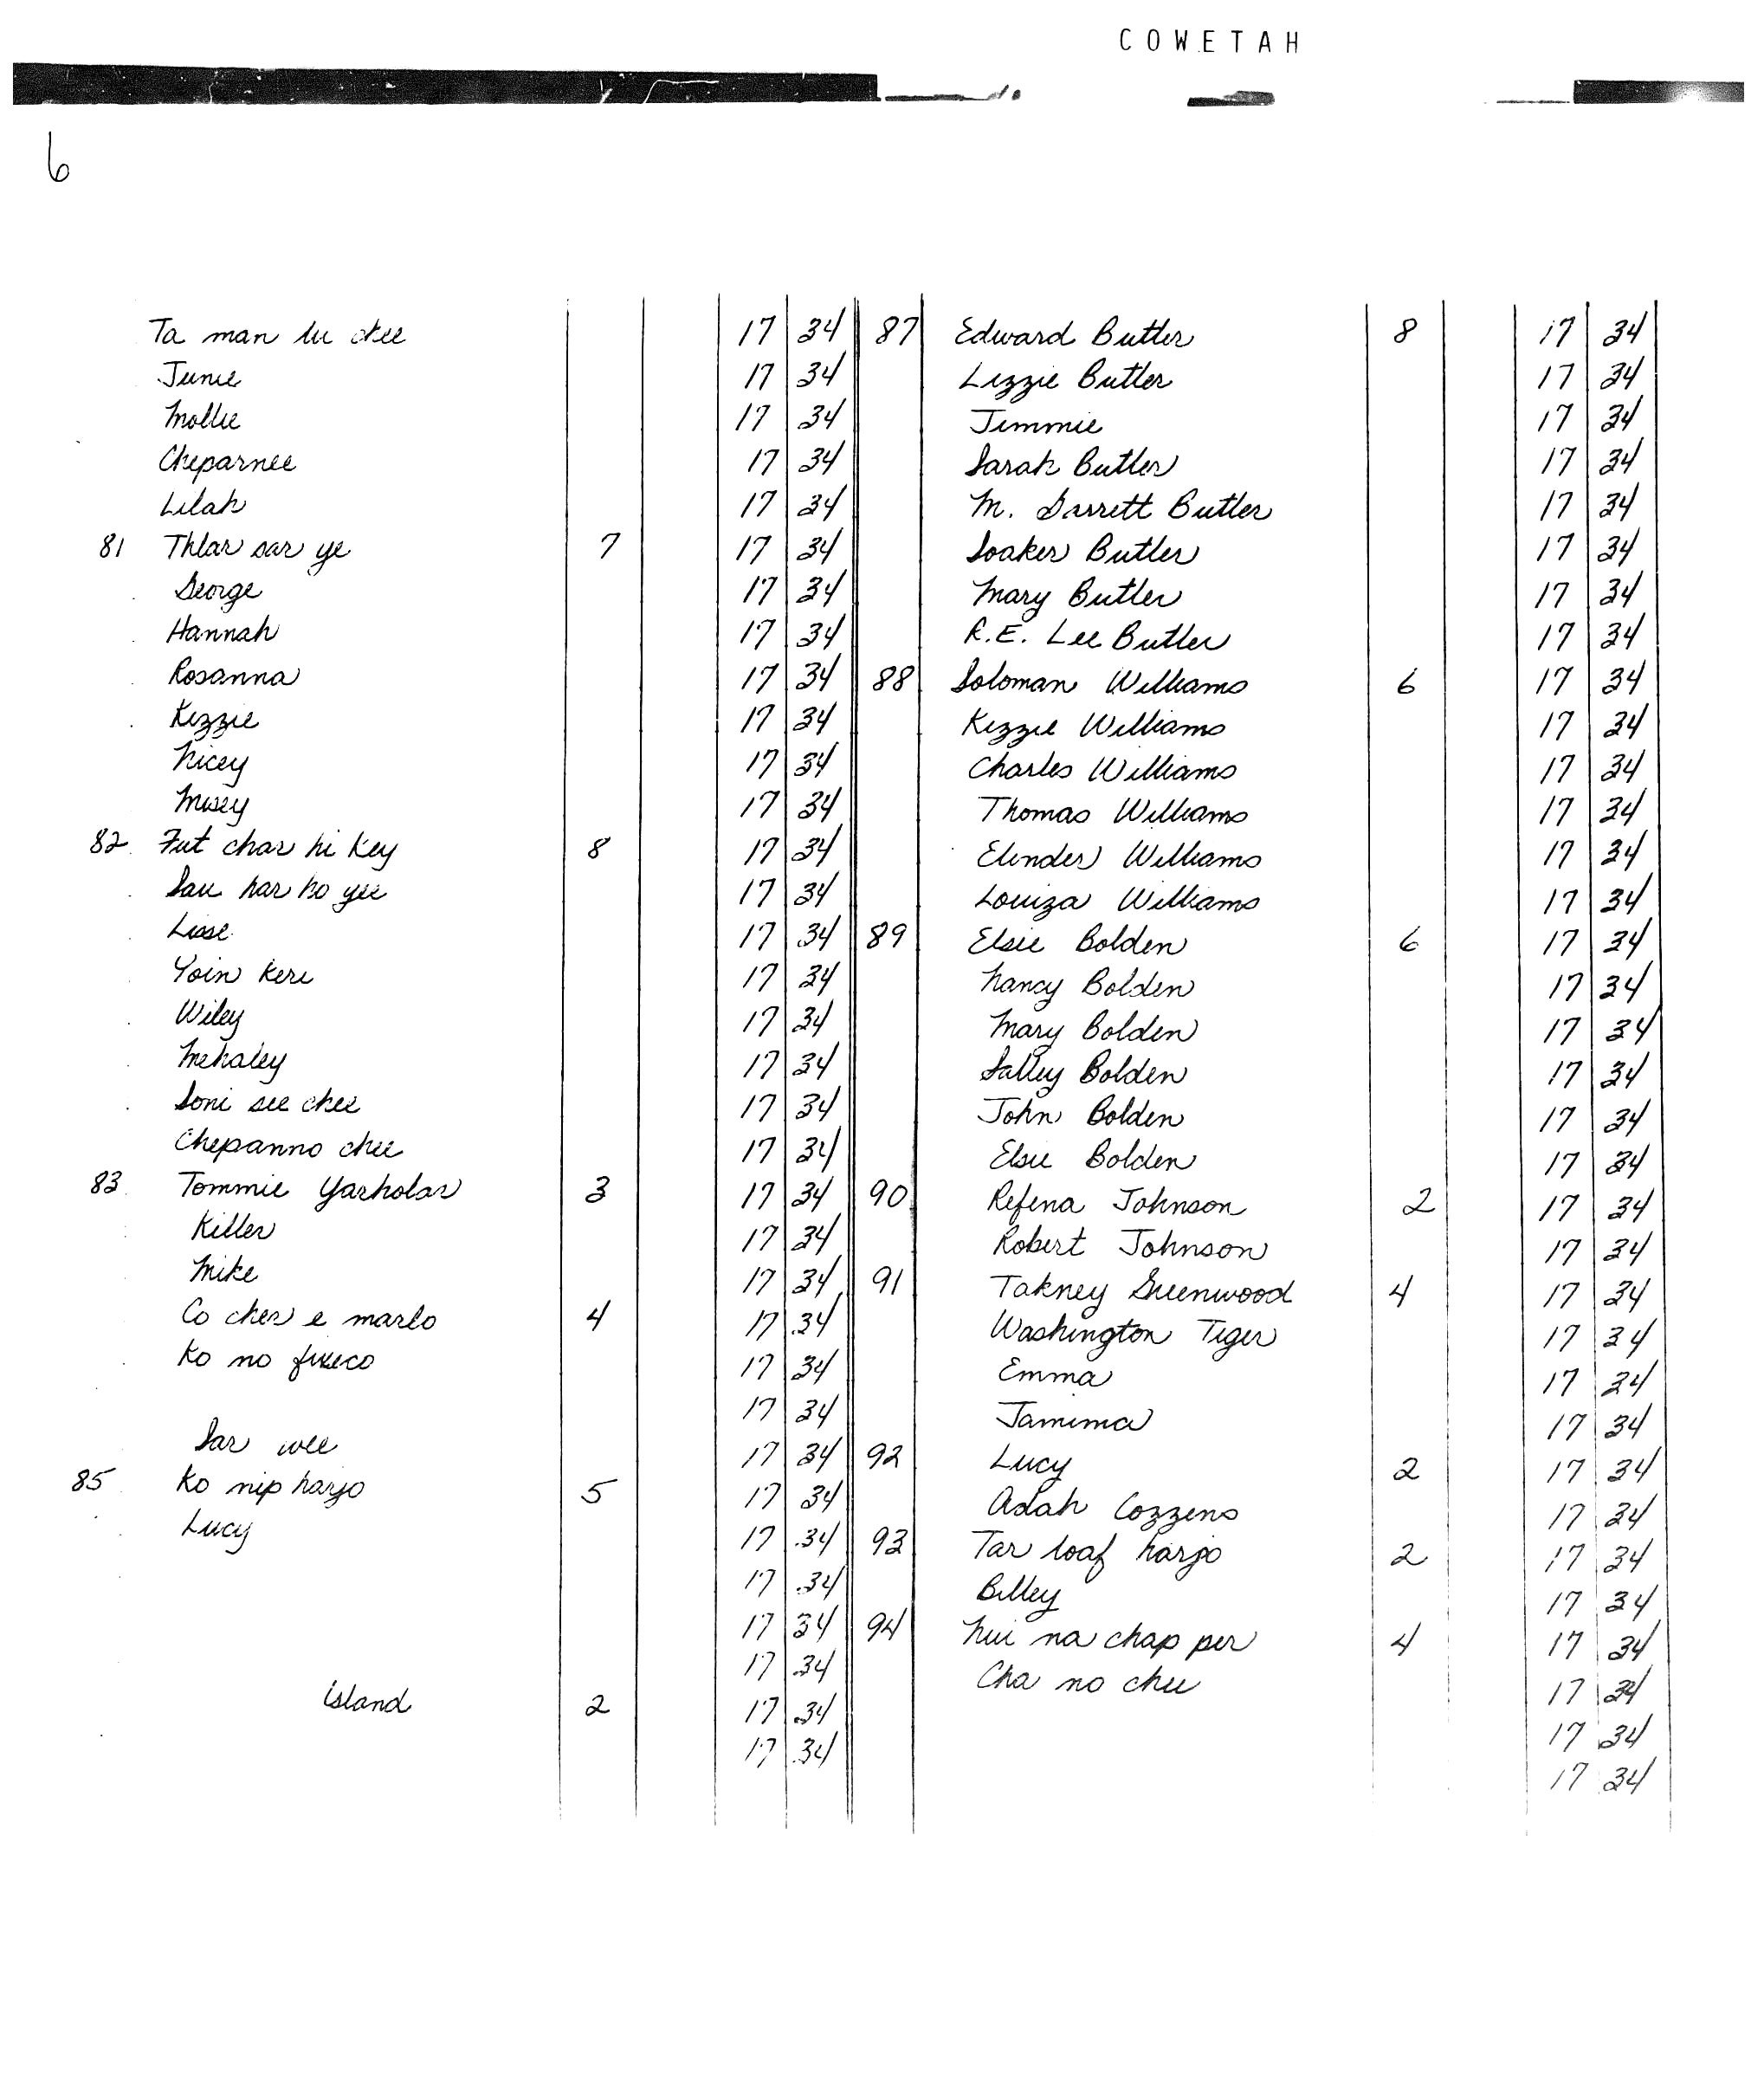 COWETAH
6
Ta man lu chee 17 34
Junie 17 34
Mollie 17 34
Cheparnee 17 34
Lilah 17 34
81 Thlar sar ye 7 17 34
George 17 34
Hannah 17 34
Rosanna 17 34
Kizzie 17 34
Nicey 17 34
Misey 17 34
82 Fut char hi key 8 17 34
Sau har ho yee 17 34
Lisse 17 34
Yoin keri 17 34
Wiley 17 34
Mehaley 17 34
Soni see chee 17 34
Chepanno chee 17 34
83 Tommie Yarholar 3 17 34
Killer 17 34
Mike 17 34
Co cher e marlo 4 17 34
Ko no fixeco 17 34
17 34
Sar wee 17 34
85 Ko nip harjo 5 17 34
Lucy 17 34
17 34
17 34
17 34
island 2 17 34
17 34
87 Edward Butler 8 17 34
Lizzie Butler 17 34
Jimmie 17 34
Sarah Butler 17 34
M. Garrett Butler 17 34
Soaker Butler 17 34
Mary Butler 17 34
R.E. Lee Butler 17 34
88 Soloman Williams 6 17 34
Kizzie Williams 17 34
Charles Williams 17 34
Thomas Williams 17 34
Elinder Williams 17 34
Louiza Williams 17 34
89 Elsie Bolden 6 17 34
Nancy Bolden 17 34
Mary Bolden 17 34
Salley Bolden 17 34
John Bolden 17 34
Elsie Bolden 17 34
90 Refena Johnson 2 17 34
Robert Johnson 17 34
91 Takney Greenwood 4 17 34
Washington Tiger 17 34
Emma 17 34
Jamima 17 34
92 Lucy 2 17 34
Adah Cozzens 17 34
93 Tar loaf harjo 2 17 34
Billey 17 34
94 Nui na chap per 4 17 34
Cha no chee 17 34
17 34
17 34